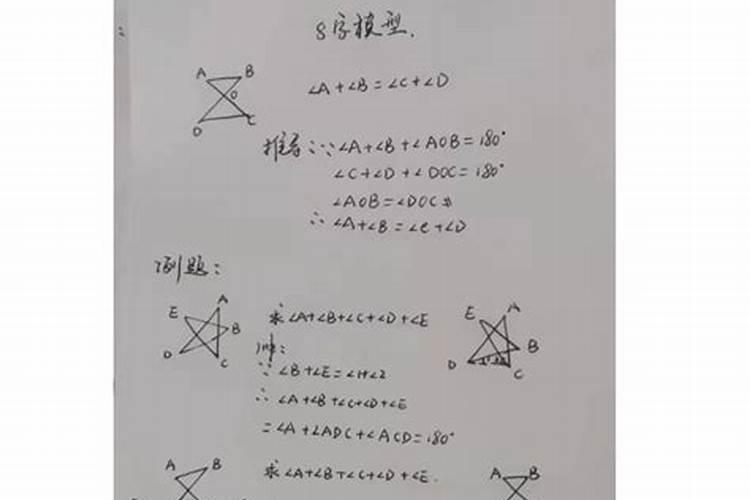 8字模型.
A B
O
D C
∠A+∠B=∠C+∠D
推导:∵∠A+∠B+∠AOB=180°
∠C+∠D+∠DOC=180°
∠AOB=∠DOC
∴∠A+∠B=∠C+∠D
例题:
E A B D C
求∠A+∠B+∠C+∠D+∠E
E A B D C
∵∠B+∠E=∠1+∠2
∴∠A+∠B+∠C+∠D+∠E
=∠A+∠ADC+∠ACD=180°
A B
求∠A+∠B+∠C+∠D+∠E.
A B